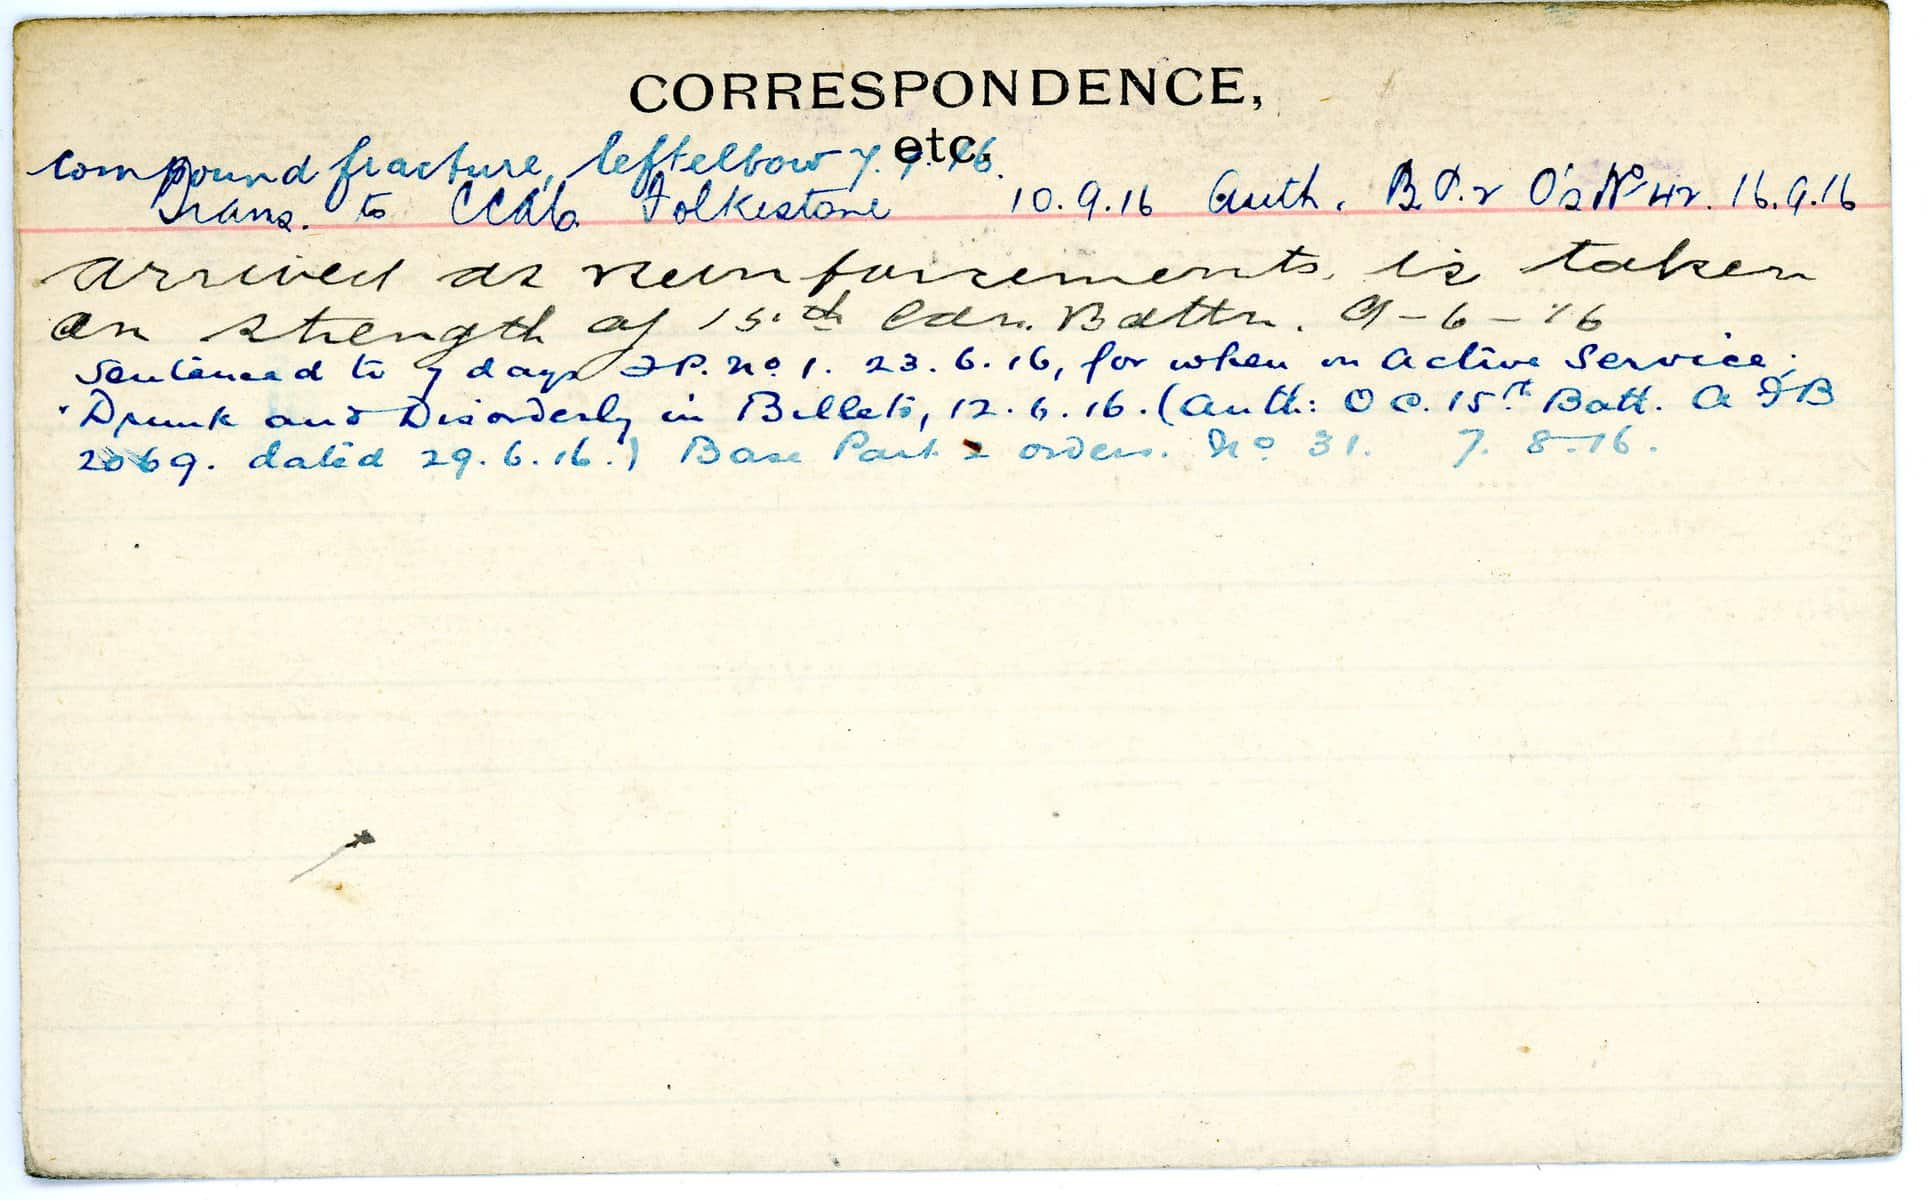 CORRESPONDENCE,
etc.
Compound fracture, left elbow 7. 16.
Trans. to CCAC Folkestone 10.9.16 Auth. B.P.2 O's No 42. 16.9.16
Arrived as reinforcements, is taken
on strength of 15th Can. Battn. 9-6-16
Sentenced to 7 days F.P. No 1. 23.6.16, for when on Active Service;
Drunk and Disorderly in Billets, 12.6.16. (Auth: O C. 15th Batt. A F B
2069. dated 29.6.16.) Base Part 2 orders. No 31. 7. 8-16.